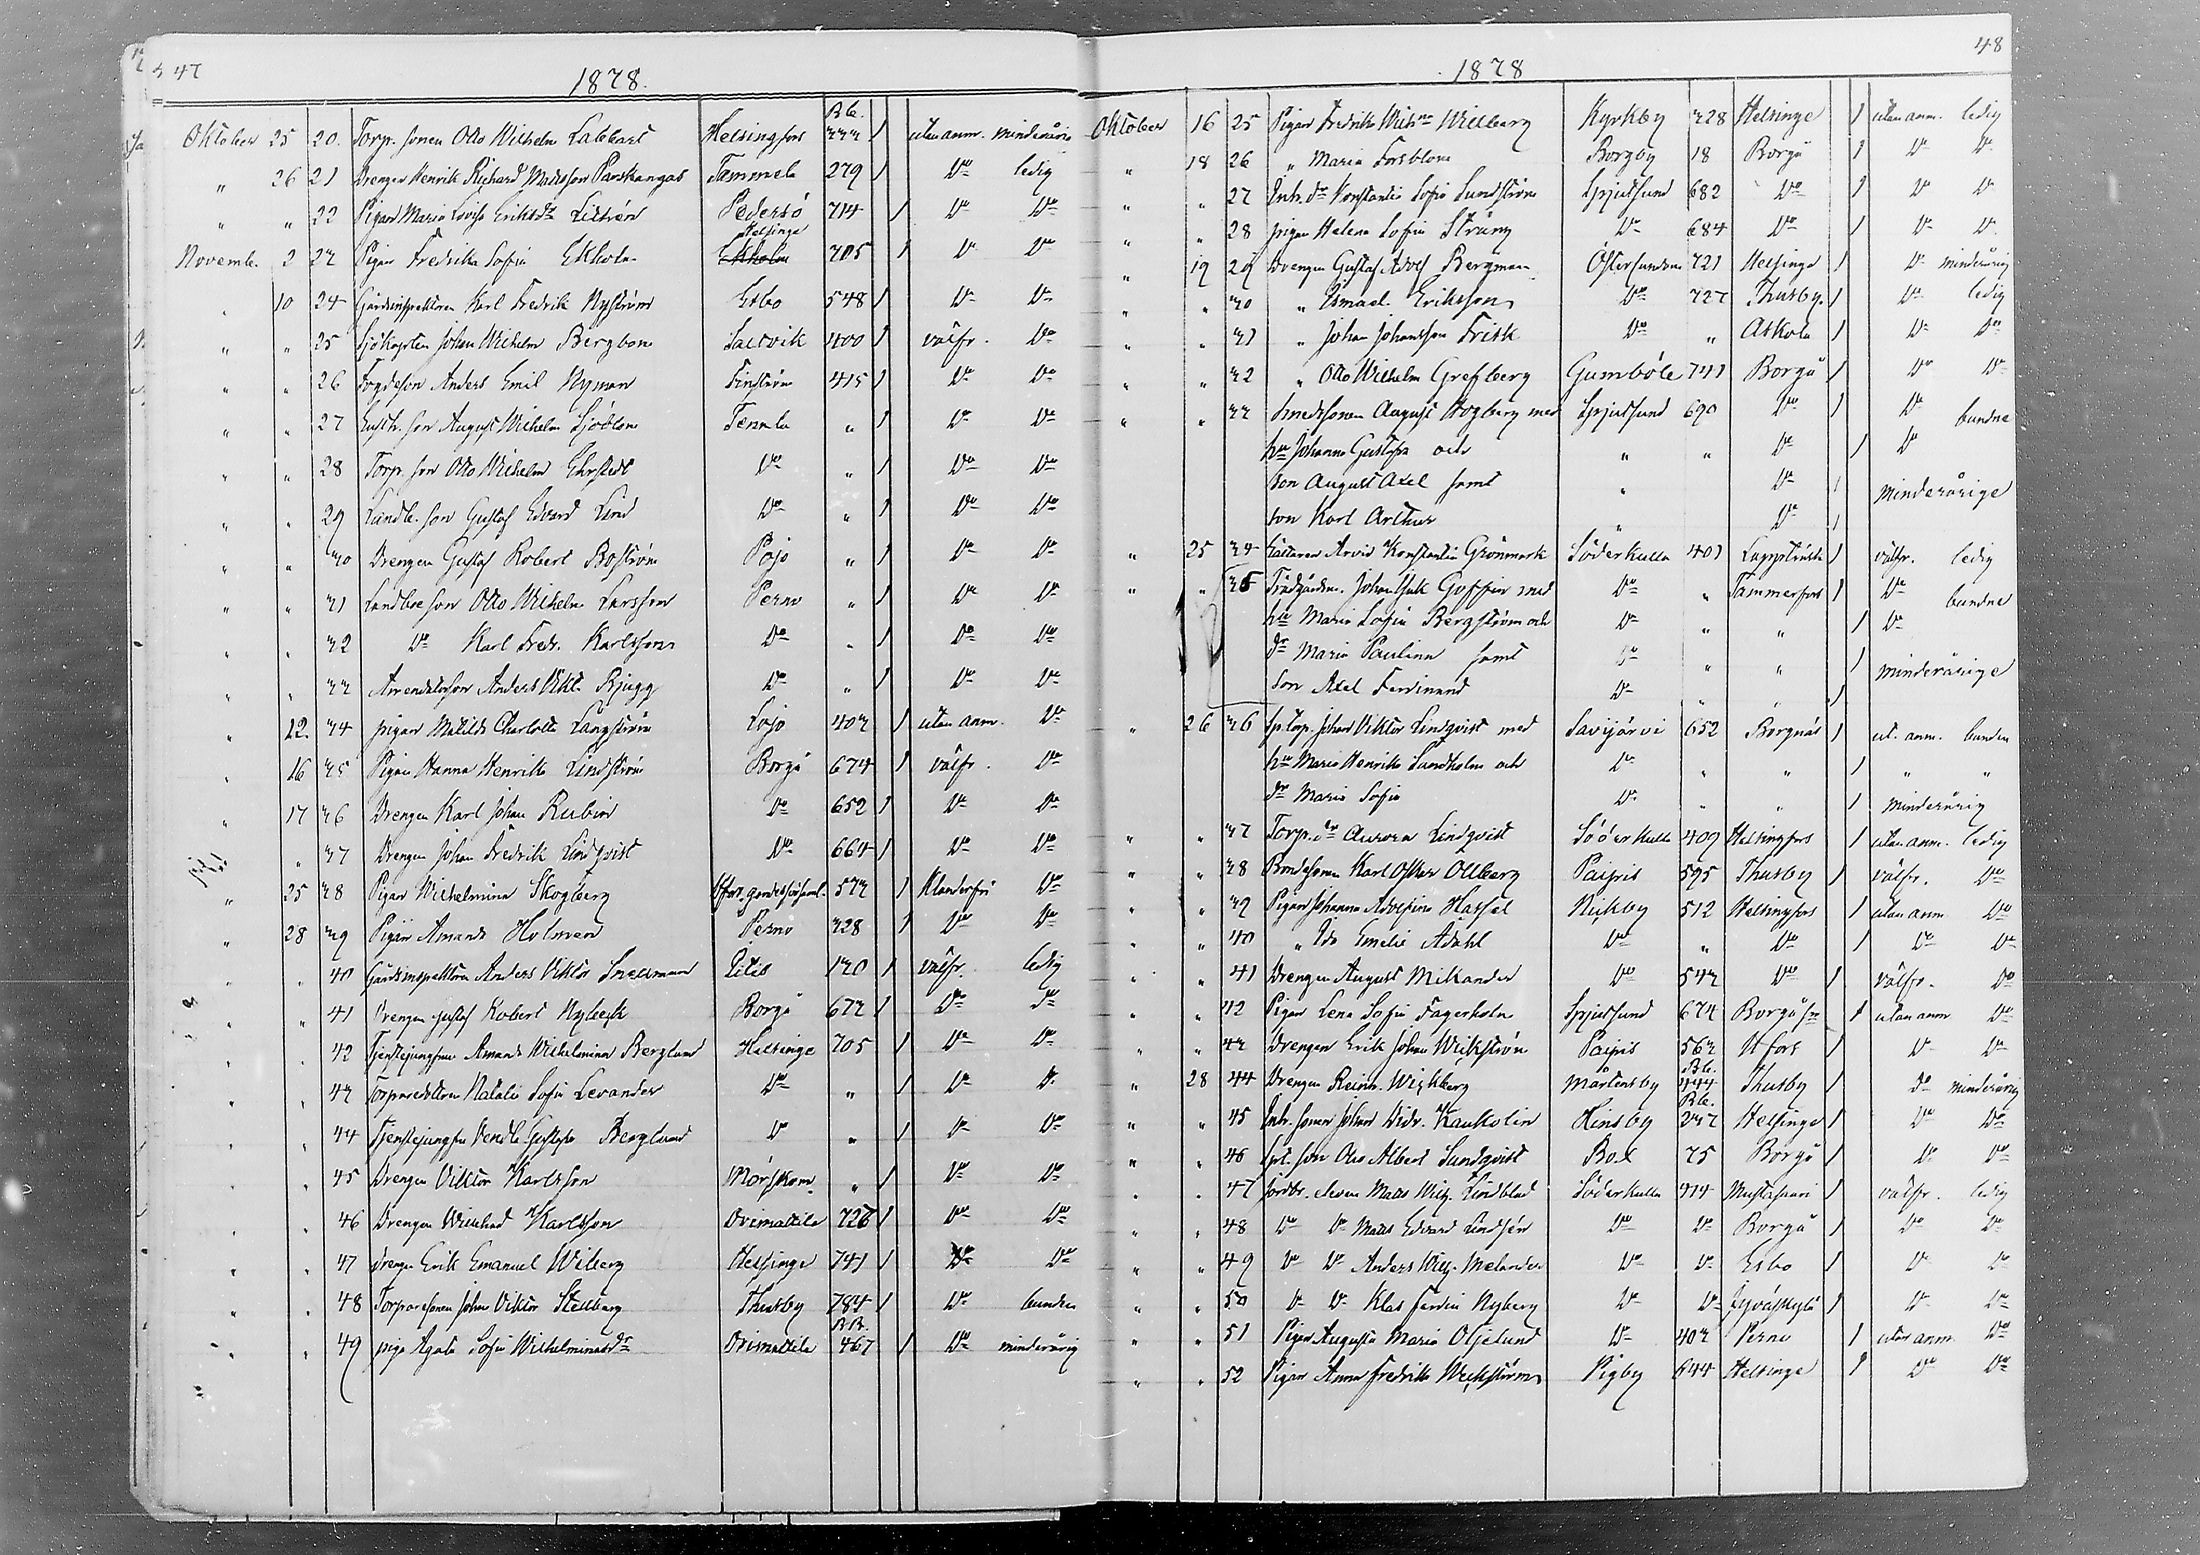 47
1878.
Oktober 25 20. Torp. sonen Otto Wilhelm Helsingfors Bb. 333 1 utan anm. minderårig
" 26 21 Drengen Henrik Richard Madsson Tammela 279 1 Do ledig
" " 22 Pigan Maria Lovisa Eriksdr Pedersö 714 1 Do Do
Novemb. 2 23 Pigan Fredrika Sofia Ekholm Helsinge 705 1 Do Do
" 10 24 Gårdsinspektoren Karl Fredrik Nyström Esbo 548 1 Do Do
" " 25 Sjökapten Johan Wilhelm Bergbom Saltvik 400 1 välfr. Do
" " 26 Fogdeson Anders Emil Nyman Finström 415 1 Do Do
" " 27 son August Wilhelm Sjöblom Tenala " 1 Do Do
" " 28 Torp. son Otto Wilhelm Ehrstedt Do " 1 Do Do
" " 29 Landb. son Gustaf Edvard Lind Do " 1 Do Do
" " 30 Drengen Gustaf Robert Boström Pojo " 1 Do Do
" " 31 Landboeson Otto Wilhelm Larsson Perno " 1 Do Do
" " 32 Do Karl Fredr. Karlsson Do " 1 Do Do
" " 33 Arrendatorson Anders Vikt. Bjugg Do " 1 Do Do
" 12. 34 pigan Matilda Charlotta Långström Lojo 403 1 utan anm. Do
" 16 35 Pigan Hanna Henrika Lindström Borgå 674 1 välfr. Do
" 17 36 Drengen Karl Johan Rubin Do 652 1 Do Do
" 37 Drengen Johan Fredrik Lindqvist Do 664 1 Do Do
" 25 38 Pigan Wilhelmina Skogberg 573 1 Klanderfri Do
" 28 39 Pigan Amanda Holmen Perno 328 1 Do Do
" " 40 Gårdsinspektoren Anders Viktor Snellman 130 1 välfr. ledig
" " 41 Drengen Gustaf Robert Nybeck Borgå 673 1 Do Do
" " 42 Tjenstejungfrun Amanda Wilhelmina Berglund Helsinge 705 1 Do Do
" " 43 Torparedottren Natalia Sofia Levander Do " 1 Do Do
" " 44 Tjenstejungfru Vendla Gustafva Berglund Do " 1 Do Do
" " 45 Drengen Viktor Karlsson Mörskom " 1 Do Do
" " 46 Drengen Karlsson Orimattila 726 1 Do Do
" " 47 drengen Erik Emanuel Wiberg Helsinge 741 1 Do Do
" " 48 Torparesonen Johan Viktor Stellberg Thusby 784 1 Do bunden
" " 49 piga Agata Sofia Wilhelminasdr Orimattila Bb. 467 1 Do minderårig
48
1878
Oktober 16 25 Pigan Fredrika Willberg Kyrkby 328 Helsinge 1 utan anm. ledig
" 18 26 " Maria Forsblom Borgby 18 Borgå 1 Do Do
" " 27 Inh. dr Konstantia Sofia Sundström Spjutsund 682 Do 1 Do Do
" " 28 pigan Helena Sofia Strång Do 684 Do 1 Do Do
" 19 29 Drengen Gustaf Adolf Bergman Östersundom 721 Helsinge 1 Do minderårig
" " 30 " Ismael Eriksson Do 727 Thusby. 1 Do ledig
" " 31 " Johan Johansson Frisk Do " Askola 1 Do Do
" " 32 " Otto Wilhelm Grefberg Gumböle 741 Borgå 1 Do Do
" " 33 Smedssonen August Högberg med Spjutsund 690 Do 1 Do bundne
hu Johanna Gustafva och " " Do 1 Do
son August Axel samt " Do 1 minderårige
son Karl Arthur " Do 1
" 25 34 Arvid Konstantin Grönmark Söderkulla 401 Lappträsk 1 välfr. ledig
" " 35 Trädgårdsm. Johan Isak Goffin med Do " Tammerfors 1 Do bundne
hu Maria Sofia Bergström och Do " " 1 Do
dr Maria Paulina samt Do " " 1 minderårige
Son Axel Ferdinand Do " " 1
" 26 36 sp. torp. Johan Viktor Lindqvist med Savijärvi 652 Borgnäs 1 ut. anm. bunden
hu Maria Henrika Sundholm och Do " " 1 " "
dr Maria Sofia Do " " 1 minderårig
" " 37 Torp. dr Aurora Lindqvist Söderkulla 409 Helsingfors 1 utan anm. ledig
" " 38 Bondesonen Karl Oskar Ollberg Paipis 595 Thusby 1 välfr. Do
" " 39 Pigan Johanna Adolfina Hassel Nickby 512 Helsingfors 1 utan anm Do
" " 40 " Ida Emelie Adahl Do " Do 1 Do Do
" " 41 Drengen August Mikander Do 543 Do 1 välfr. Do
" " 42 Pigan Lena Sofia Fagerholm Spjutsund 674 Borgå sn 1 utan anm Do
" " 43 Drengen Erik Johan Wickström Paipis 563 Hfors 1 Do Do
" 28 44 Drengen Reinh. Wickberg Mårtensby Bb. 444 Thusby 1 Do minderårig
" " 45 Inh. sonen Johan Widr. Kaukolin Hindsby Bb. 237 Helsinge 1 Do Do
" " 46 spt. son Otto Albert Sundqvist Box 75 Borgå 1 Do Do
" " 47 Jordbr. eleven Matts Wilh. Lindblad Söderkulla 414 Mustasaari 1 välfr. ledig
" " 48 Do Do Matts Edvard Lindsén Do Do Borgå 1 Do Do
" " 49 Do Do Anders Wilh. Melander Do Do Esbo 1 Do Do
" " 50 Do Do Klas Ferdin Nyberg Do Do Jyväskylä 1 Do Do
" " 51 Pigan Augusta Maria Öljelund Do 403 Perno 1 utan anm. Do
" " 52 Pigan Anna Fredrika Weckström Pigby 644 Helsinge 1 Do Do